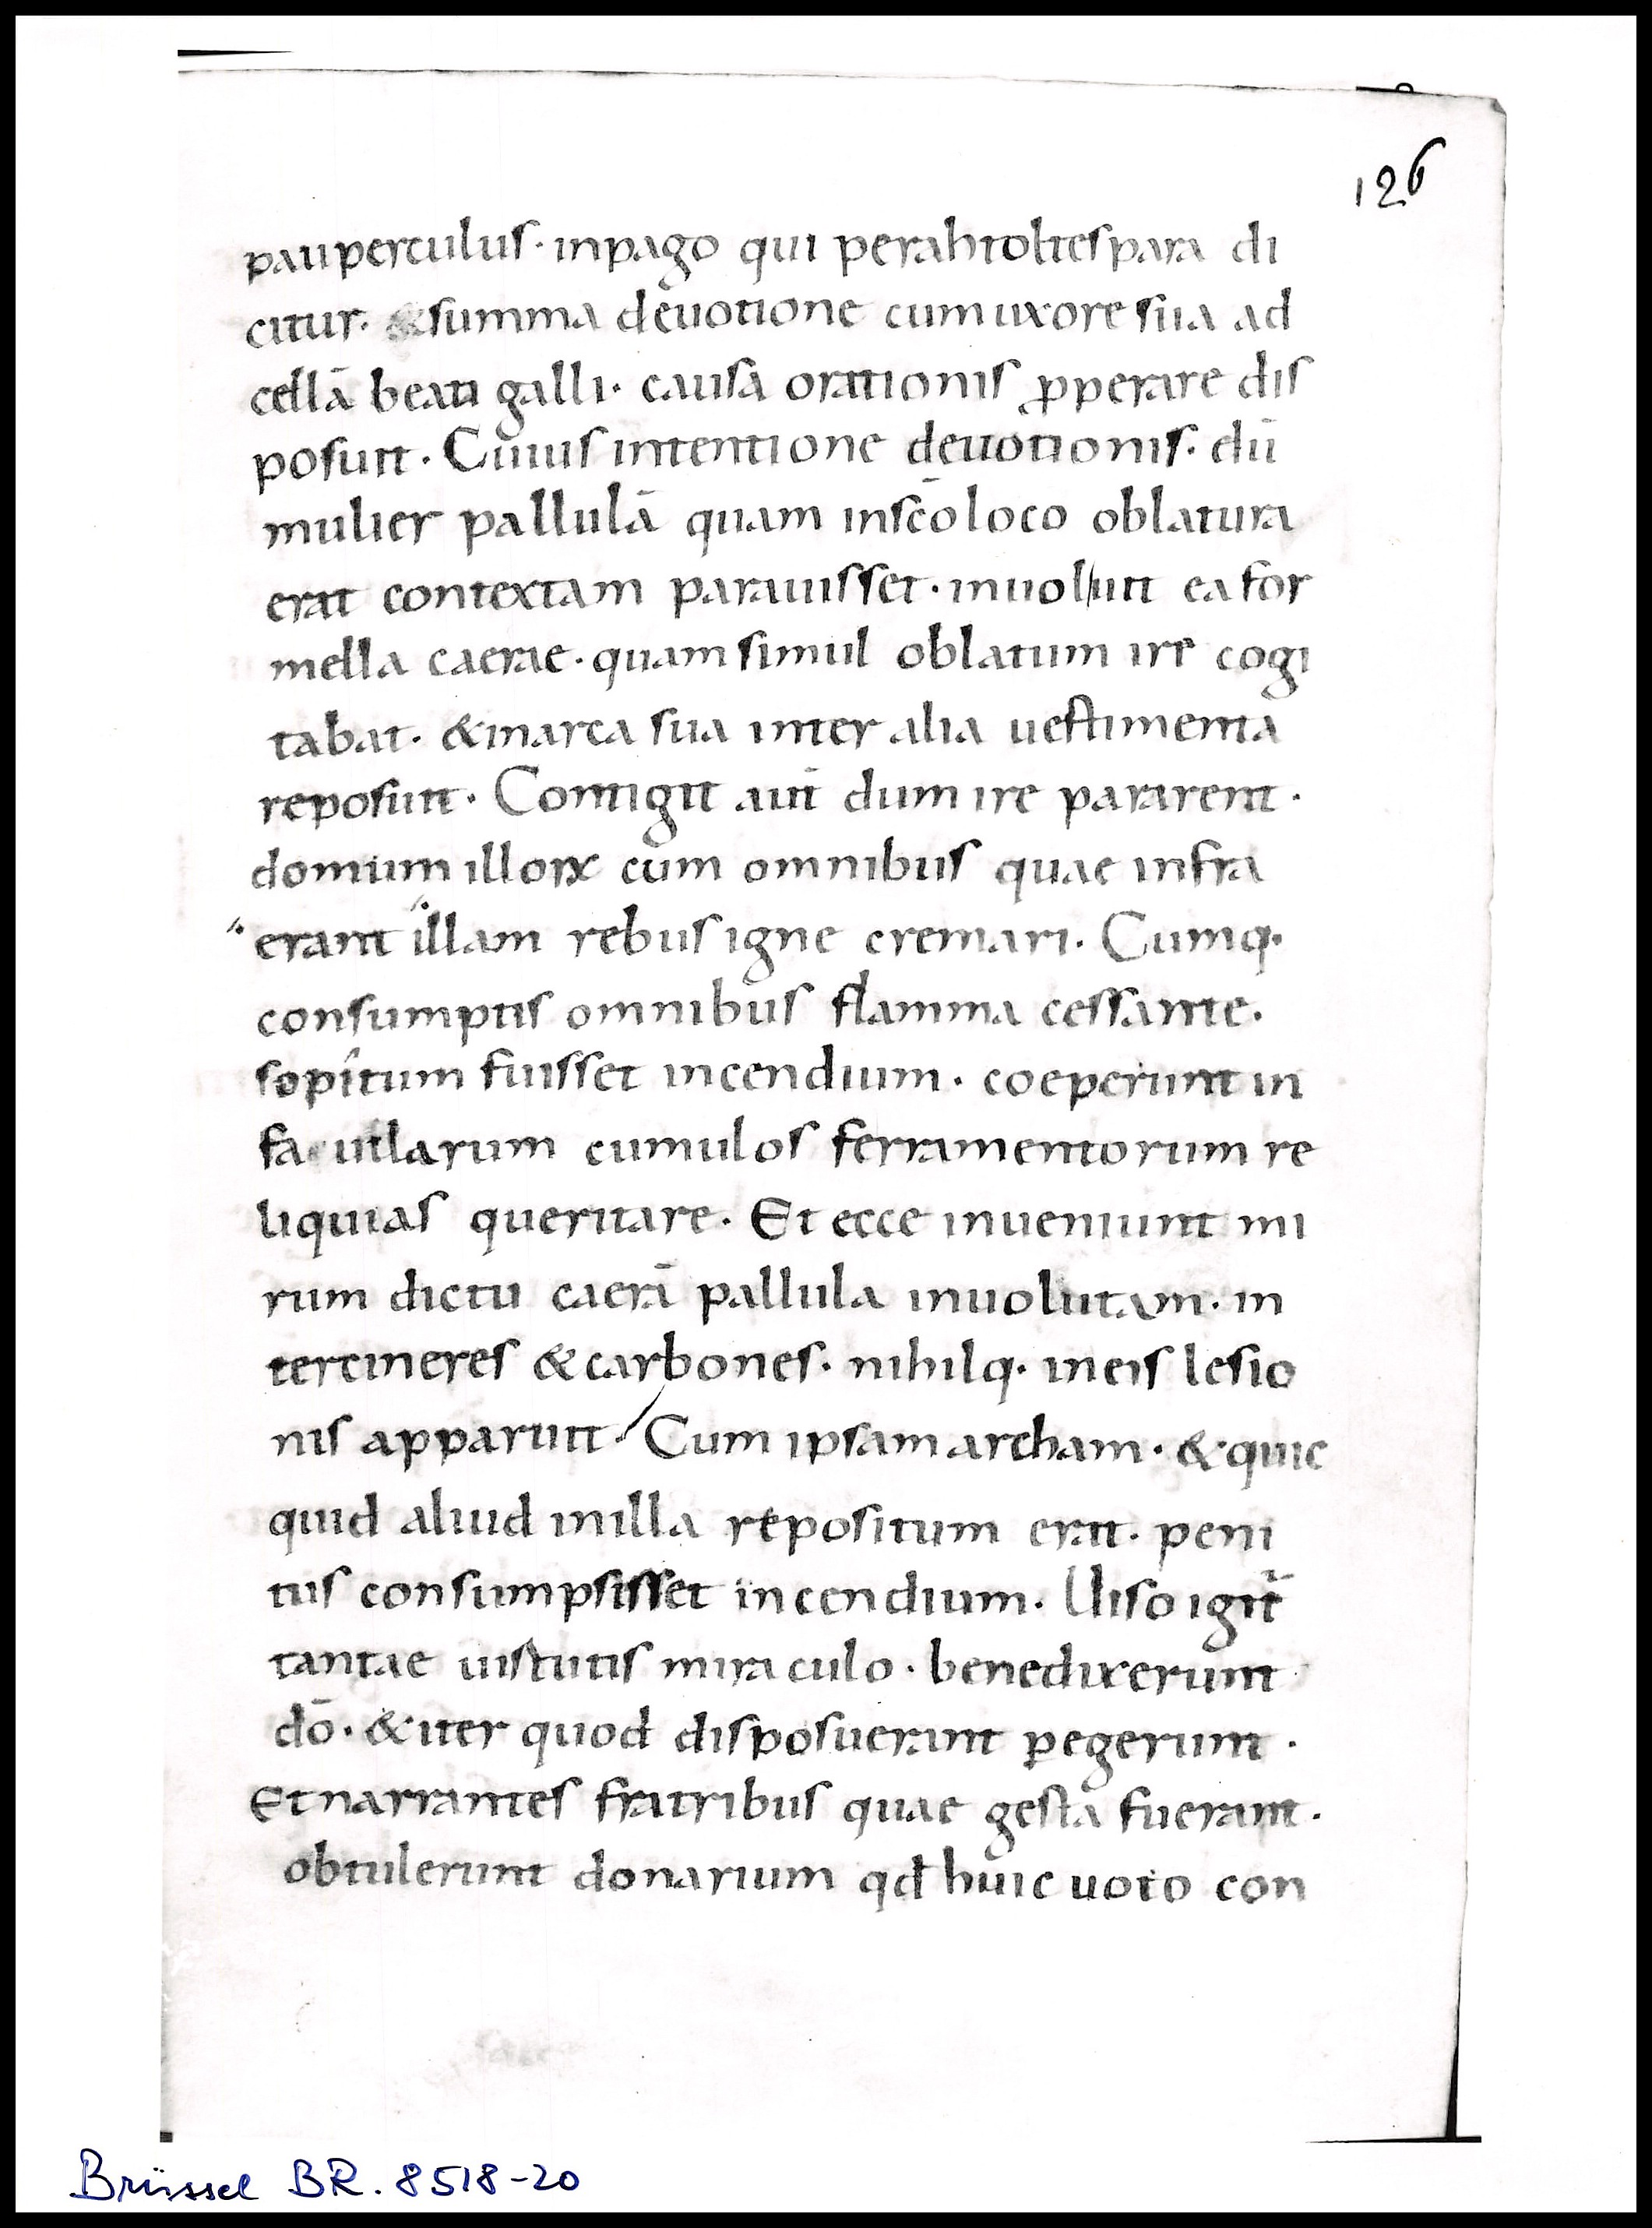 126
pauperculus· inpago qui perahtoltespara di
citur· &summa deuotione cumuxore sua ad
cellā beati galli· causa orationis ꝓperare dis
posuit· Cuius intentione deuotionis· dū
mulier pallulā quam inscōloco oblatura
erat contextam parauisset· inuoluit ea for
mella caerae· quam simul oblatum ire cogi
tabat· &inarca sua inter alia uestimenta
reposuit· Contigit aut̄ dum ire pararent·
domum illoꝝ cum omnibus quae infra
erant illam rebus igne cremari· Cumq·
consumptis omnibus flamma cessante·
sopitum fuisset incendium· coeperunt in
fauillarum cumulos ferramentorum re
liquias queritare· Et ecce inueniunt mi
rum dictu caerā pallula inuolutam· in
tercineres &carbones· nihilq· ineis lesio
nis apparuit· Cum ipsam archam· &quic
quid aliud inilla repositum erat· peni
tus consumpsisset incendium· Uiso igit̄
tantae uirtutis miraculo· benedixerunt
dō· &iter quod disposuerant ꝑegerunt·
Et narrantes fratribus quae gesta fuerant·
obtulerunt donarium qđ huic uoto con
Brüssel BR. 8518-20